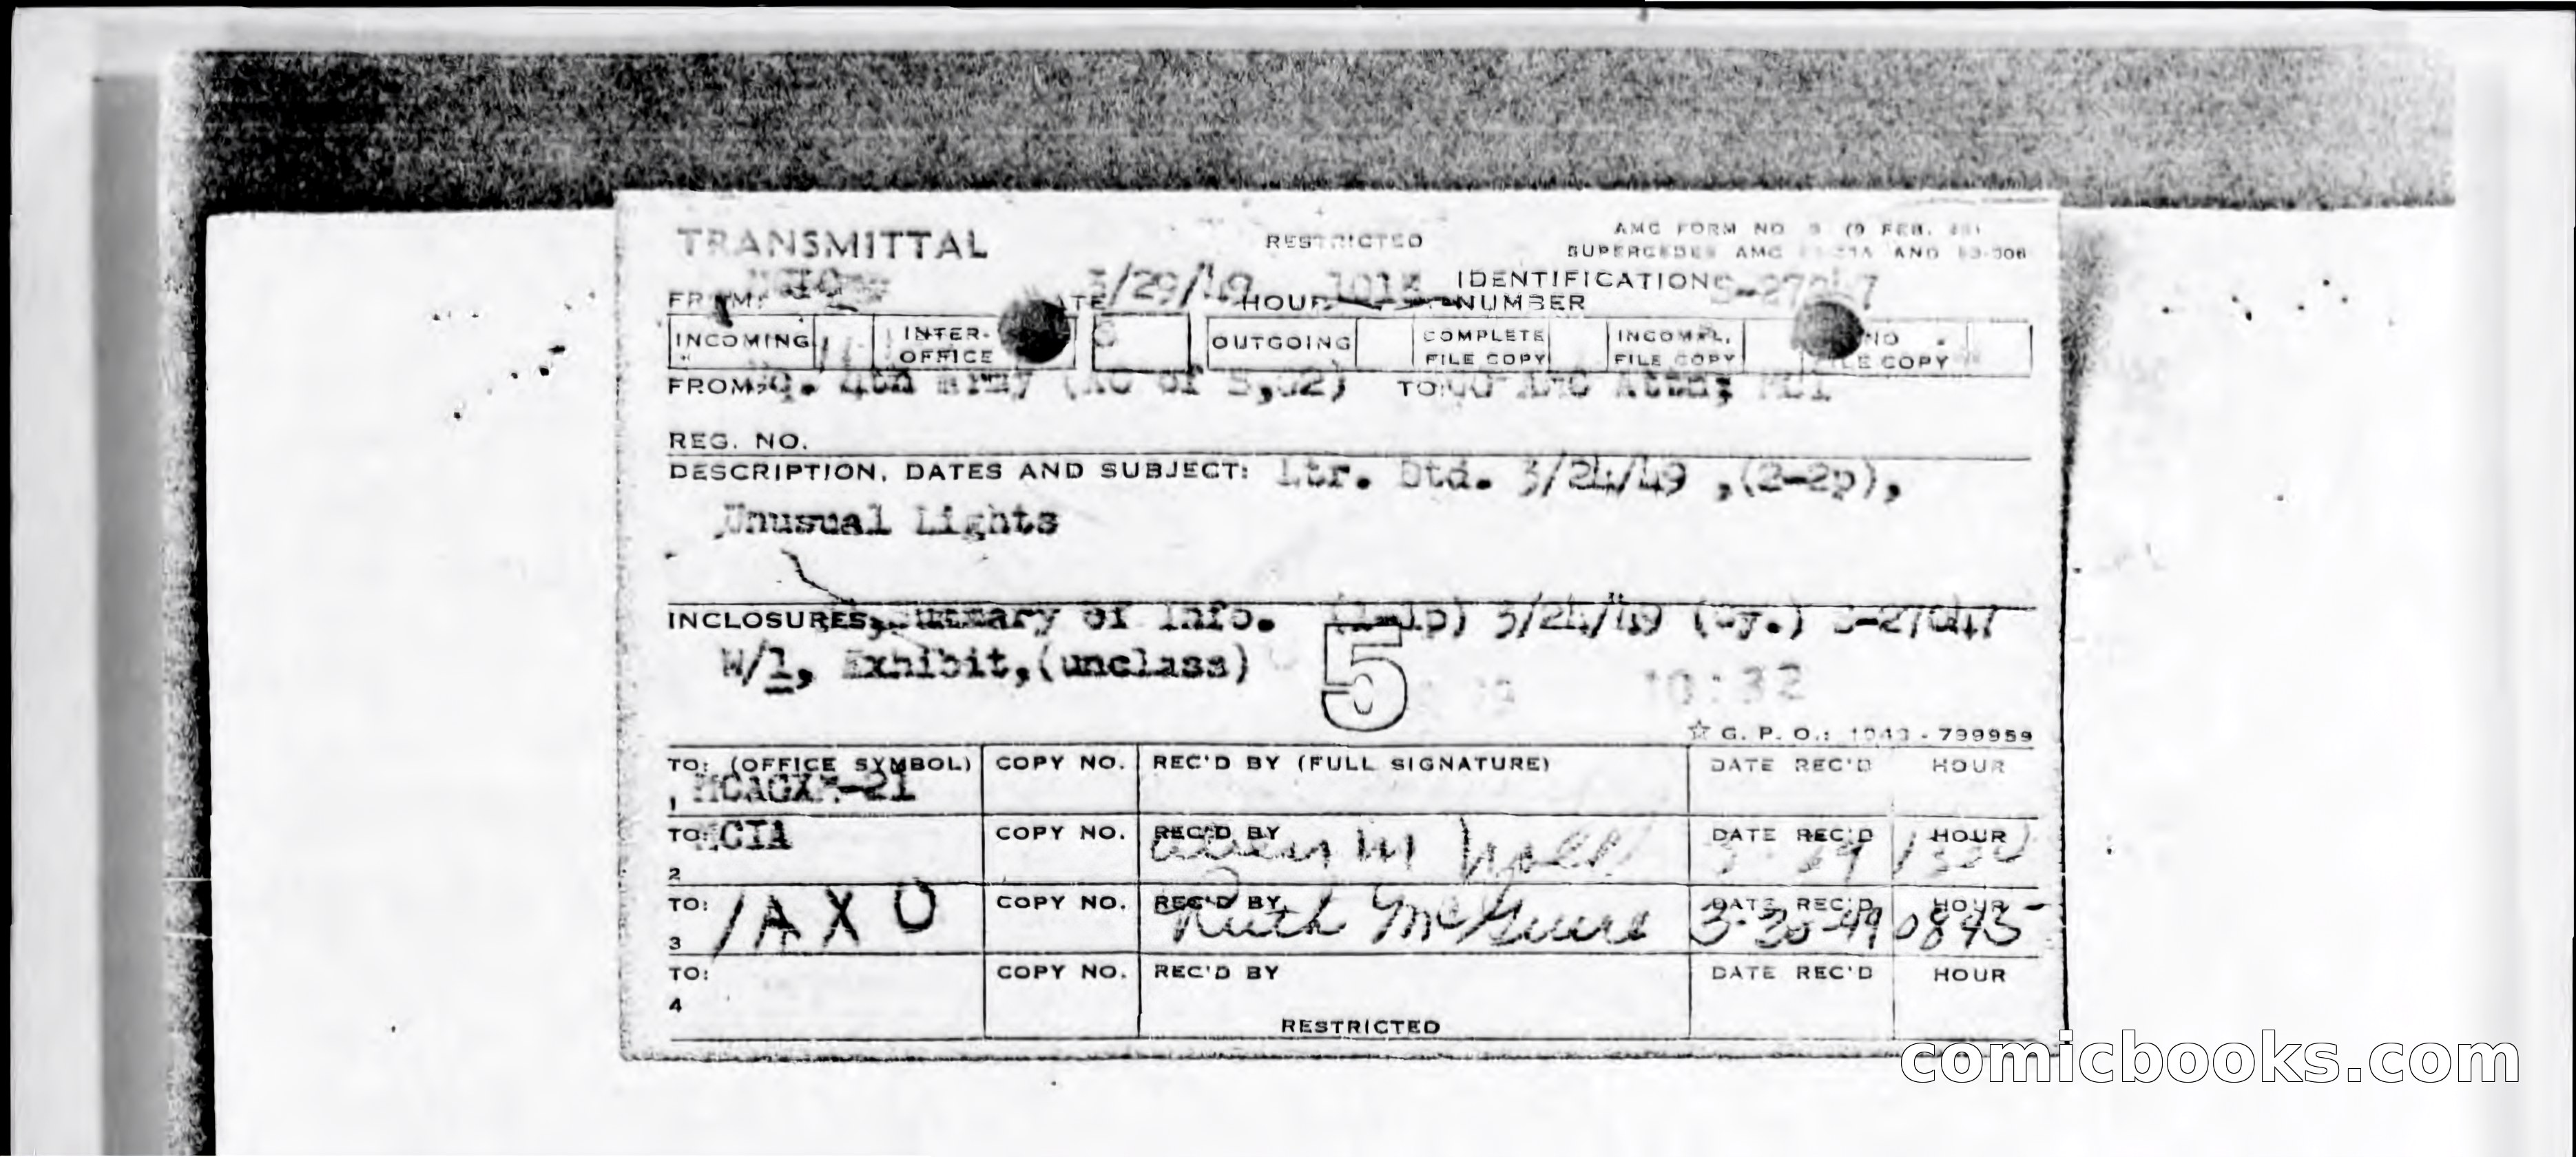 TRANSMITTAL
RESTRICTED
AMC FORM NO (9 FEB.
SUPERCEDES AMC AND
FROM: DATE 3/29/49 HOUR IDENTIFICATION NUMBER
INCOMING INTER-OFFICE OUTGOING COMPLETE FILE COPY INCOMPL. FILE COPY NO FILE COPY
FROM: Hq. 4th Army (AC of S,G2) TO: CG AMC Attn; MCI
REG. NO.
DESCRIPTION, DATES AND SUBJECT: Ltr. Dtd. 3/24/49 ,(2-2p),
Unusual Lights
INCLOSURES, Summary of Info. (1-1p) 3/24/49 (cy.)
W/1, Exhibit,(unclass)
5
10:32
☆ G. P. O.: - 799959
TO: (OFFICE SYMBOL) COPY NO. REC'D BY (FULL SIGNATURE) DATE REC'D HOUR
1 MCACXM-21
TO: MCIA COPY NO. REC'D BY DATE REC'D HOUR
2
TO: /AXO COPY NO. REC'D BY Ruth McGuire DATE REC'D 3-30-49 HOUR 0845
3
TO: COPY NO. REC'D BY DATE REC'D HOUR
4
RESTRICTED
comicbooks.com